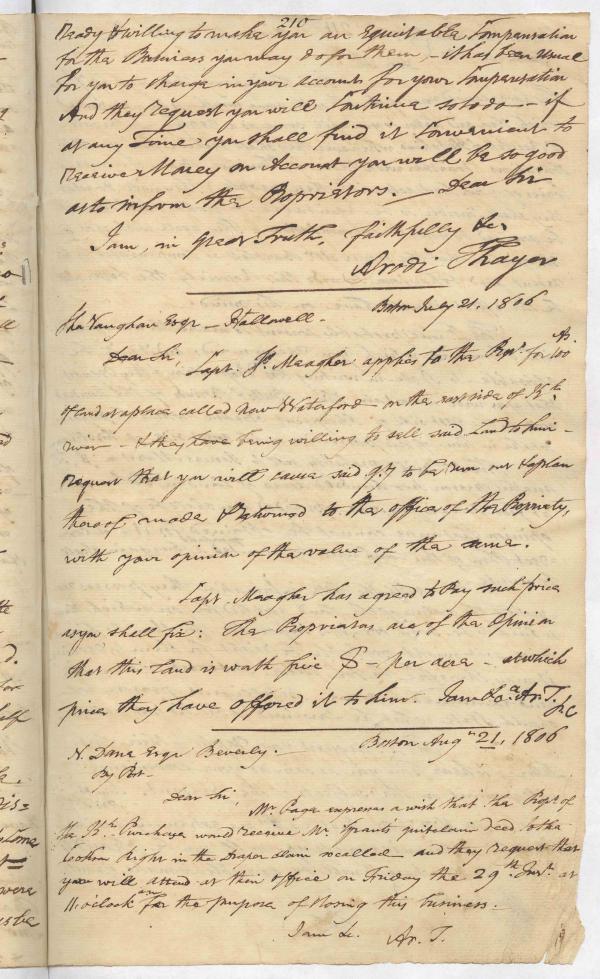 210
ready & willing to make you an Equitable Compensation
for the Business you may do for them, - it has been usual
for you to charge in your account for your Compensation
And they request you will Continue so to do - if
at any Time you shall find it Convenient to
receive Money on Account you will be so good
as to inform the Proprietors. Dear Sir
I am, in great Truth, faithfully &c
Arodi Thayer
Boston July 21. 1806
Chas Vaughan Esqr - Hallowell -
Dear Sir, Capt. Meagher applies to the Propr. for 100 As.
of land at a place called New Waterford on the east side of K
river - & they have being willing to sell said Land to him -
request that you will cause said to be run out & a plan
thereof made & returned to the office of the Propriety,
with your opinion of the value of the same.
Capt. Meagher has agreed to Pay such price
as you shall fix: The Proprietors are of the Opinion
that this Land is worth five $ - per acre - at which
price they have offered it to him. I am &c Ar. T.
Boston Augt 21, 1806
N. Dana Esqr Beverly.
By Post -
Dear Sir, Mr Page expresses a wish that the Proprs of
the Kk Purchase would receive Mr Grant's quitclaim Deed to the
Right in the Draper claim so called and they request that
you will attend at their office on Friday the 29th Inst. at
11. oclock am for the purpose of closing this business.
I am &c. Ar. T.